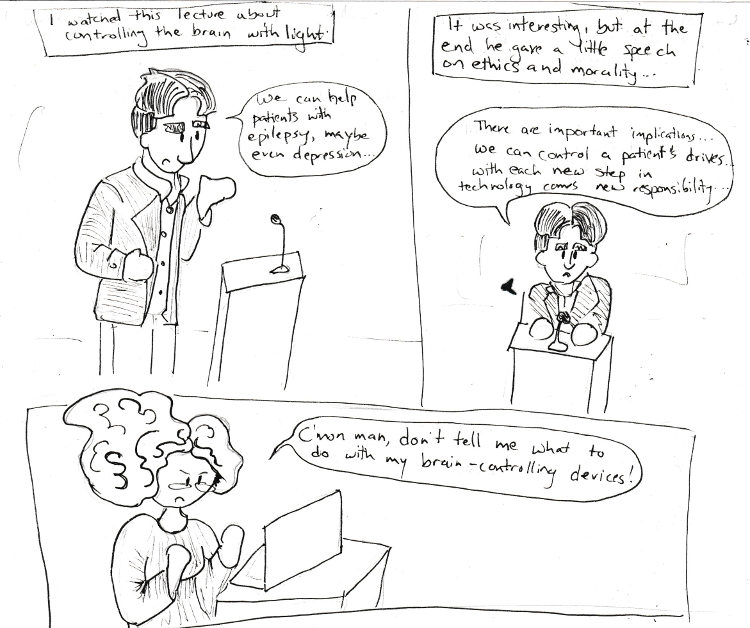 I watched this lecture about
controlling the brain with light.
We can help
patients with
epilepsy, maybe
even depression...
It was interesting, but at the
end he gave a little speech
on ethics and morality...
There are important implications...
we can control a patient's drives...
with each new step in
technology comes new responsibility...
C'mon man, don't tell me what to
do with my brain-controlling devices!